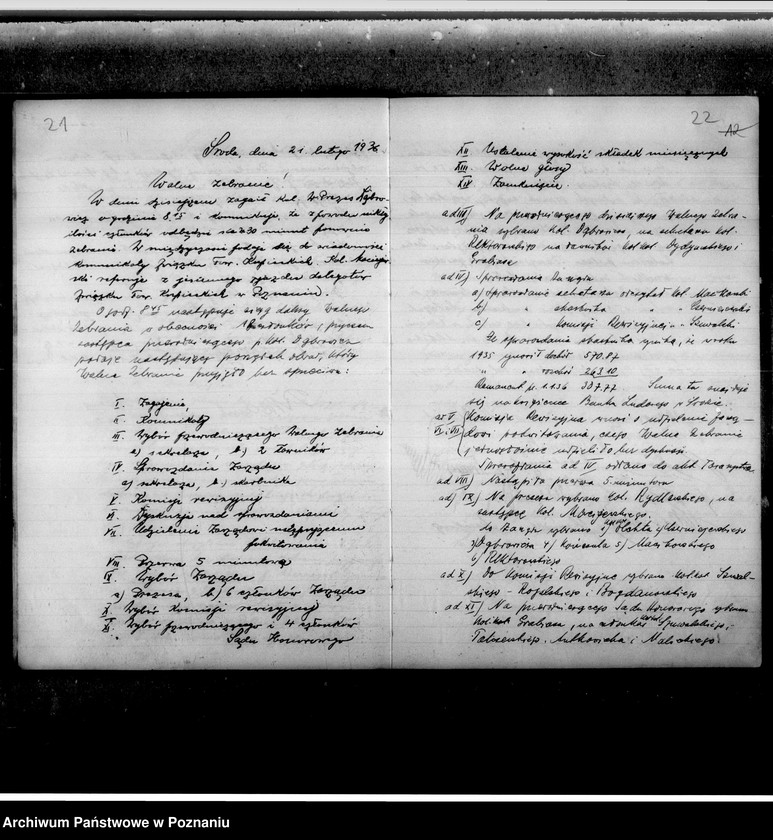 21
Środa, dnia 21. lutego 1936.
Walne Zebranie!
W dniu dzisiejszym zagaił kol. W-Prezes Dąbro-
wicz o godzinie 8.15 i komunikuje, że z powodu nikłej
ilości członków odbędzie się o 30 minut ponownie
Zebranie. W międzyczasie podaje się do wiadomości
komunikaty Związku Tow. Kupieckich. Kol. Maciejew-
ski referuje z zjazdu delegatów
Związku Tow. Kupieckich w Poznaniu.
O godz. 8.45 następuje ciąg dalszy Walnego
Zebrania w obecności członków, przyczem
zastępca przewodniczącego p. kol. Dąbrowicz
podaje następujący porządek obrad, który
Walne Zebranie przyjęło bez sprzeciwu:
I. Zagajenie,
II. Komunikaty
III. Wybór przewodniczącego Walnego Zebrania
a) sekretarza, b) 2 ławników
IV. Sprawozdania Zarządu
a) sekretarza, b) skarbnika
V. Komisji rewizyjnej
VI. Dyskusja nad sprawozdaniami
VII. Udzielenie Zarządowi ustępującemu
pokwitowania
VIII. Przerwa 5 minutowa
IX. Wybór Zarządu
a) Prezesa, b) 6 członków Zarządu
X. Wybór Komisji rewizyjnej
XI. Wybór przewodniczącego i 4 członków
Sądu Honorowego
22
12
XII. Ustalenie wysokość składek miesięcznych
XIII. Wolne głosy
XIV. Zamknięcie.
ad III) Na przewodniczącego dzisiejszego Walnego Zebra-
nia wybrano kol. Dąbrowicza, na sekretarza kol.
na ławników kol. kol. i
Grabiasa
ad IV) Sprawozdania Zarządu
a) Sprawozdanie sekretarza odczytał kol. Maćkowski
b) " skarbnika " "
c) " Komisji Rewizyjnej " "
Ze sprawozdania skarbnika wynika, że w roku
1935 wynosił dochód 570.87
" " rozchód 263.10
Remanent p. r. 1936 307.77 Suma ta znajduje
się na książeczce Banku Ludowego w Środzie.
ad V. Komisja Rewizyjna wnosi o udzielenie Zarzą-
VI i VII dowi pokwitowania, czego Walne Zebranie
jednogłośnie udzieliło bez dyskusji.
Sprawozdania ad IV, oddano do akt Towarzystwa
ad VIII) Nastąpiła przerwa 5 minutowa
ad) IX) Na prezesa wybrano kol. Rydlewskiego, na
zastępcę kol. Maciejewskiego.
do Zarządu wybrano 1)
3) Dąbrowicza 4) 5) Maćkowskiego
6)
ad X) Do Komisji Rewizyjnej wybrano kol. kol.
i Bogdanowskiego
ad XI) Na przewodniczącego Sądu Honorowego wybrano
kol. Grabiasa, na członków
i Malickiego.
Archiwum Państwowe w Poznaniu